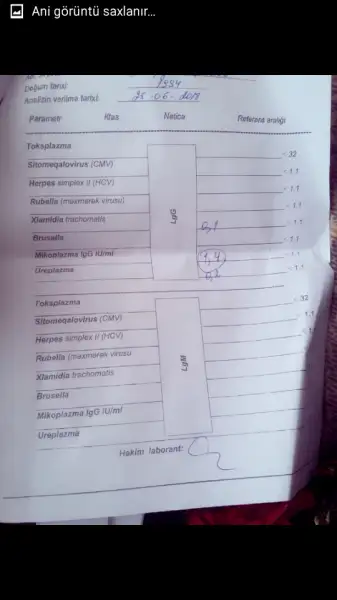 Ani görüntü saxlanır...
Doğum tarixi 1994
Analizin verilmə tarixi
Parametr Klas Nəticə Referans aralığı
Toksplazma < 32
Sitomeqalovirus (CMV) < 1.1
Herpes simplex II (HCV) < 1.1
Rubella (maxmərək virusu) < 1.1
Xlamidia trachomatis 0,1 < 1.1
Brusella < 1.1
Mikoplazma IgG IU/ml 1,4 < 1.1
Ureplazma 0,2 < 1.1
LgG
Toksplazma < 32
Sitomeqalovirus (CMV) < 1.1
Herpes simplex II (HCV)
Rubella (maxmərək virusu
Xlamidia trachomatis
Brusella
Mikoplazma IgG IU/ml
Ureplazma
LgM
Həkim laborant: